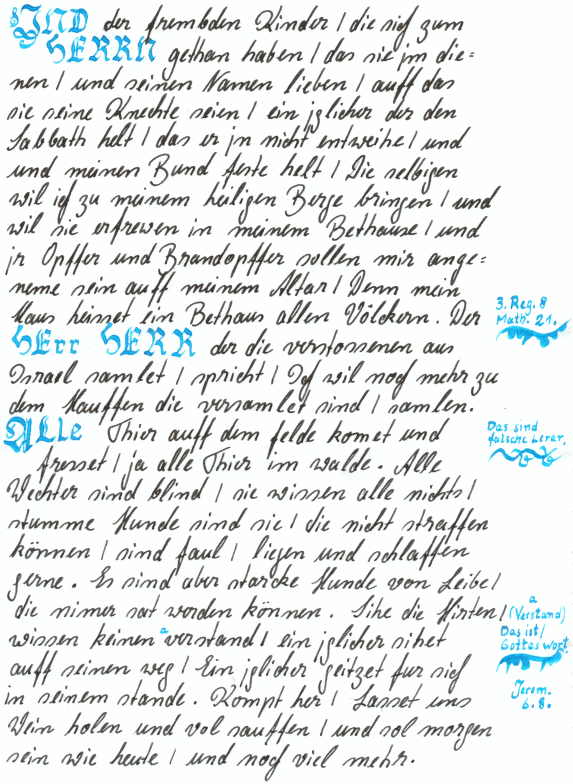 VND der frembden Kinder / die sich zum
HERRN gethan haben / das sie jm die=
nen / und seinen Namen lieben / auff das
sie seine Knechte seien / ein jglicher der den
Sabbath helt / das er jn nicht entweihe / und
und meinen Bund feste helt / Die selbigen
wil ich zu meinem heiligen Berge bringen / und
wil sie erfrewen in meinem Bethause / und
jr Opffer und Brandopffer sollen mir ange=
neme sein auff meinem Altar / Denn mein
Haus heisset ein Bethaus allen Völckern. Der
3. Reg. 8
Math. 21.
HErr HERR der die verstossenen aus
Israel samlet / spricht / Ich wil noch mehr zu
dem Hauffen die versamlet sind / samlen.
ALLe Thier auff dem felde komet und
Das sind
falsche Lerer.
fresset / ja alle Thier im walde. Alle
Wechter sind blind / sie wissen alle nichts /
stumme Hunde sind sie / die nicht straffen
können / sind faul / ligen und schlaffen
gerne. Es sind aber starcke Hunde von Leibe /
die nimer sat werden können. Sihe die Hirten /
wissen keinen a verstand / ein jglicher sihet
a
(Verstand)
Das ist /
Gottes wort.
auff seinen weg / Ein jglicher geitzet fur sich
in seinem stande. Kompt her / Lasset uns
Jerem.
6. 8.
Wein holen und vol sauffen / und sol morgen
sein wie heute / und noch viel mehr.